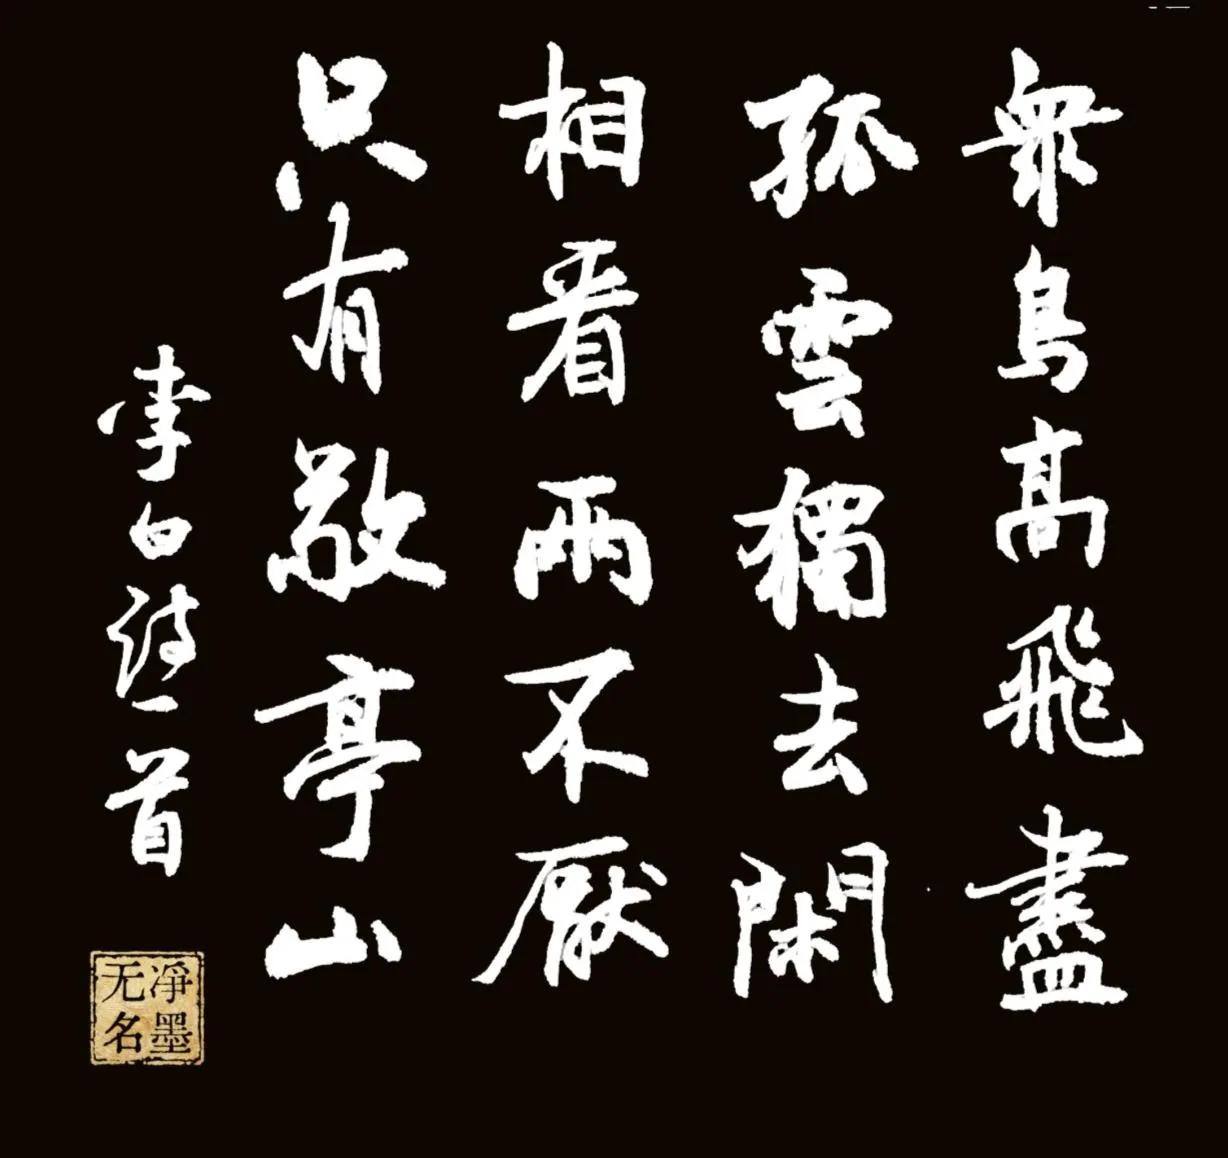 衆鳥高飛盡
孤雲獨去閑
相看兩不厭
只有敬亭山
李白詩一首
淨墨
无名